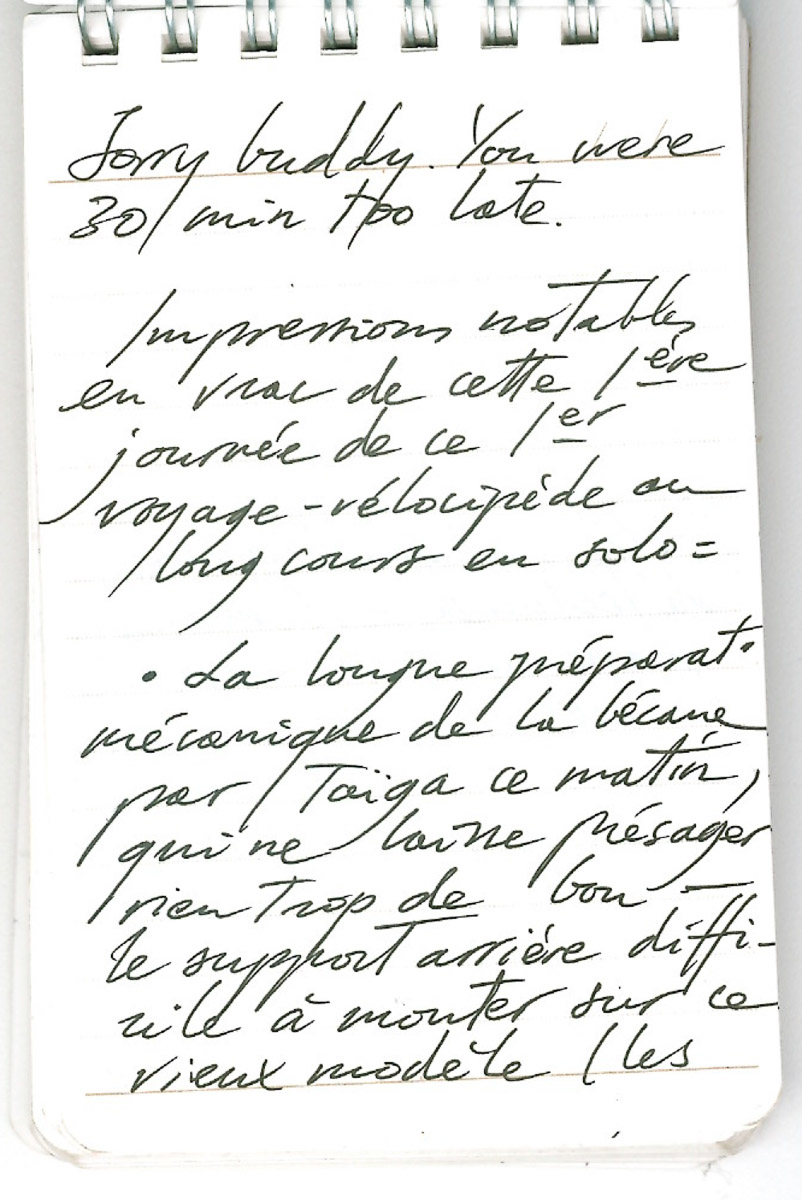 Sorry buddy. You were
30 min too late.
Impressions notables
en vrac de cette 1ère
journée de ce 1er
voyage-vélocipède au
long cours en solo =
• La longue préparat°
mécanique de la bécane
par Taïga ce matin,
qui ne laisse présager
rien trop de bon —
le support arrière diffi-
cile à monter sur ce
vieux modèle (les